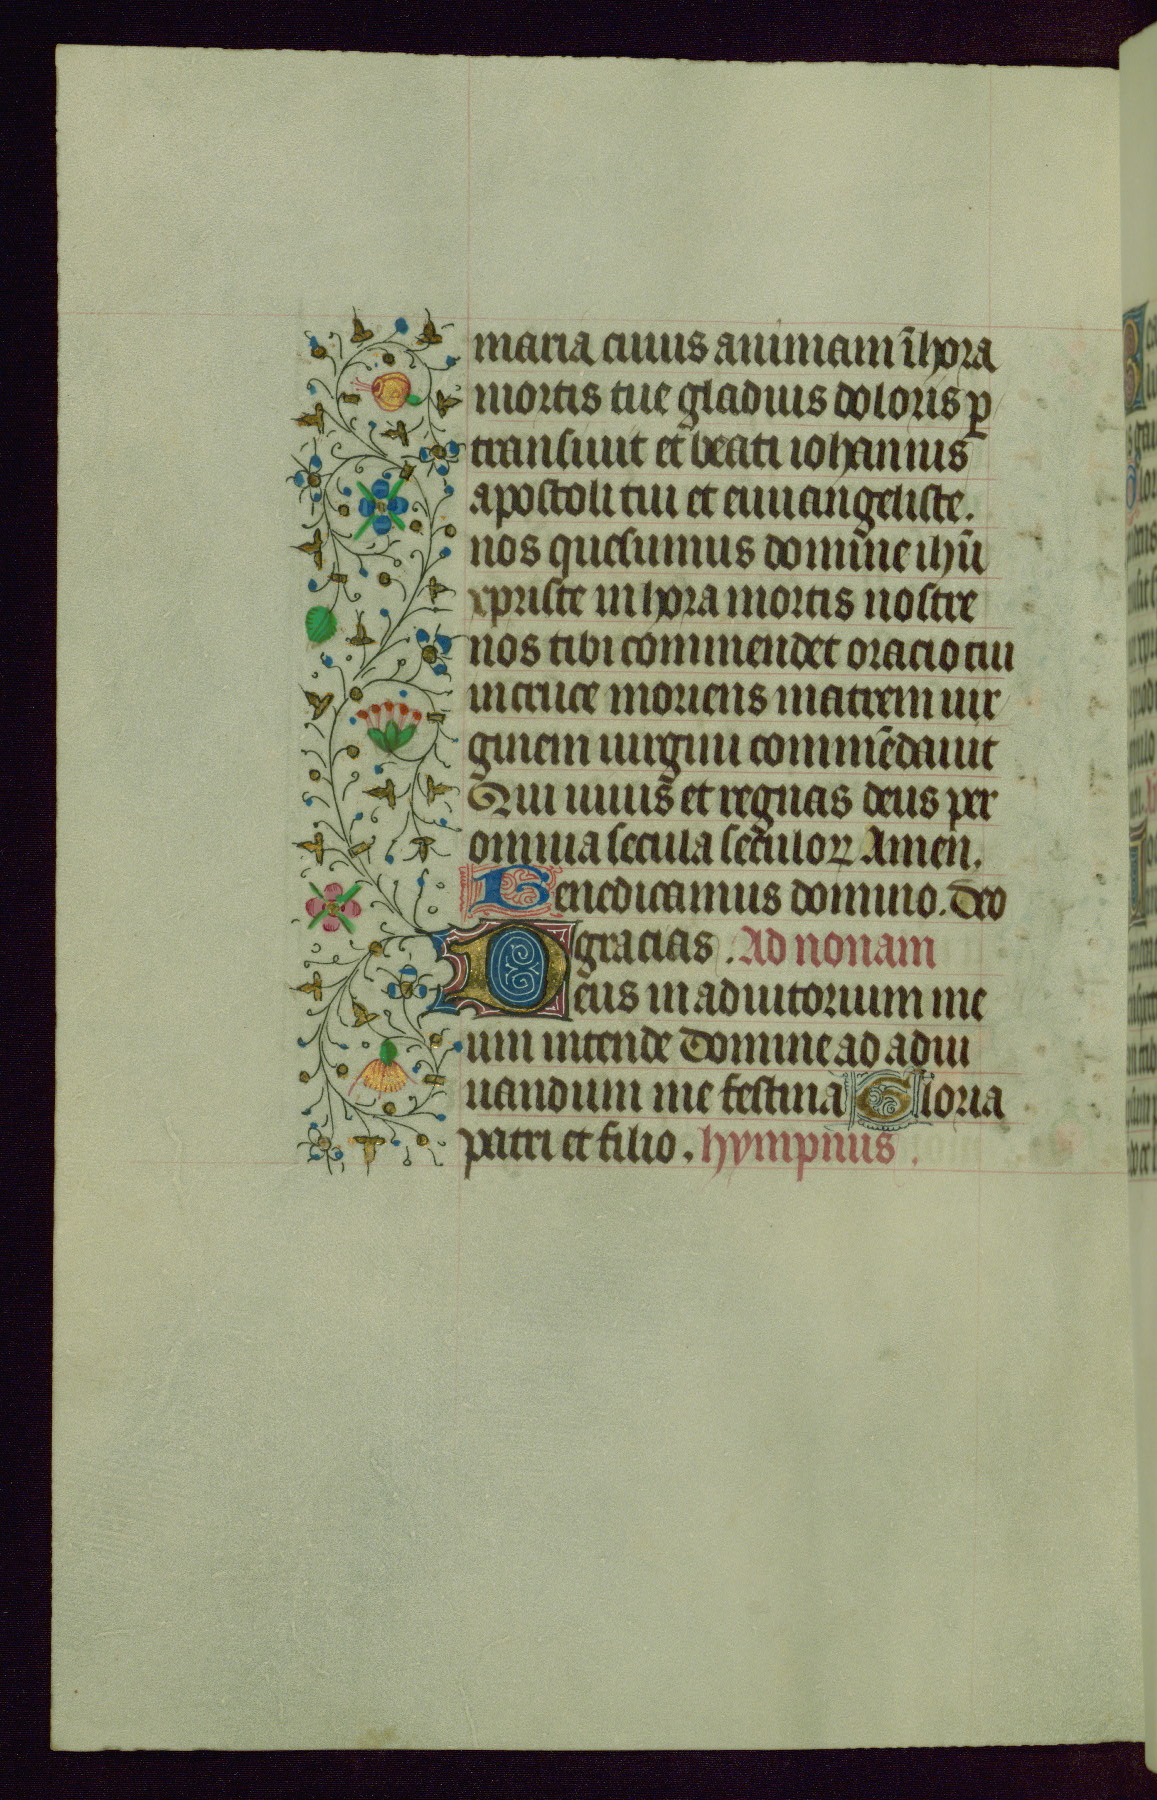 maria cuius animam ī hora
mortis tue gladius doloris ꝑ
transiuit et beati iohannis
apostoli tui et euuangeliste.
nos quesumus domine ihū
xpriste in hora mortis nostre
nos tibi commendet oracio tui
in cruce moriens matrem uir
ginem uirgini commēdauit
Qui uiuis et regnas deus per
omnia secula seculoꝝ Amen.
Benedicamus domino. Deo
gracias. Ad nonam
Deus in adiutorium me
um intende Domine ad adiu
uandum me festina Gloria
patri et filio. hympnus.